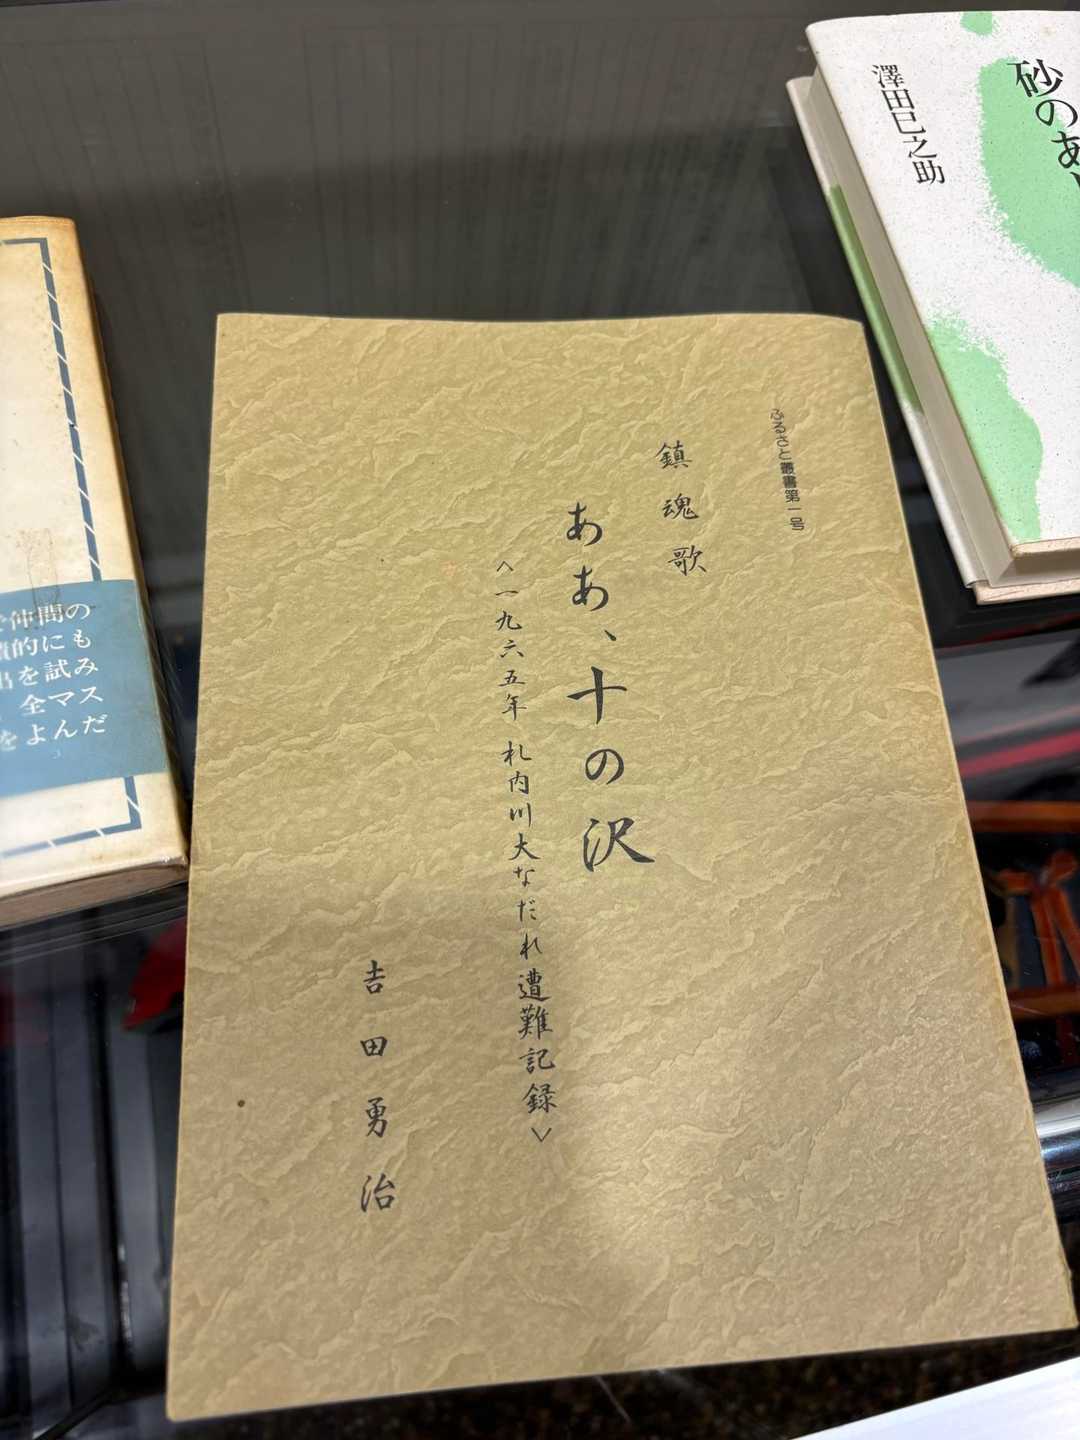 ふるさと叢書第一号
鎮魂歌
ああ、十の沢
＜一九六五年 札内川大なだれ遭難記録＞
吉田勇治
砂のあ
澤田巳之助
仲間の
的にも
を試み
全マス
をよんだ